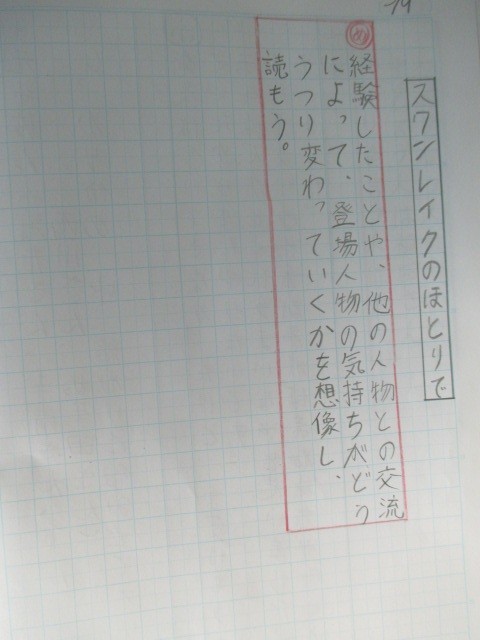 スワンレイクのほとりで
め
経験したことや、他の人物との交流
によって、登場人物の気持ちがどう
うつり変わっていくかを想像し、
読もう。